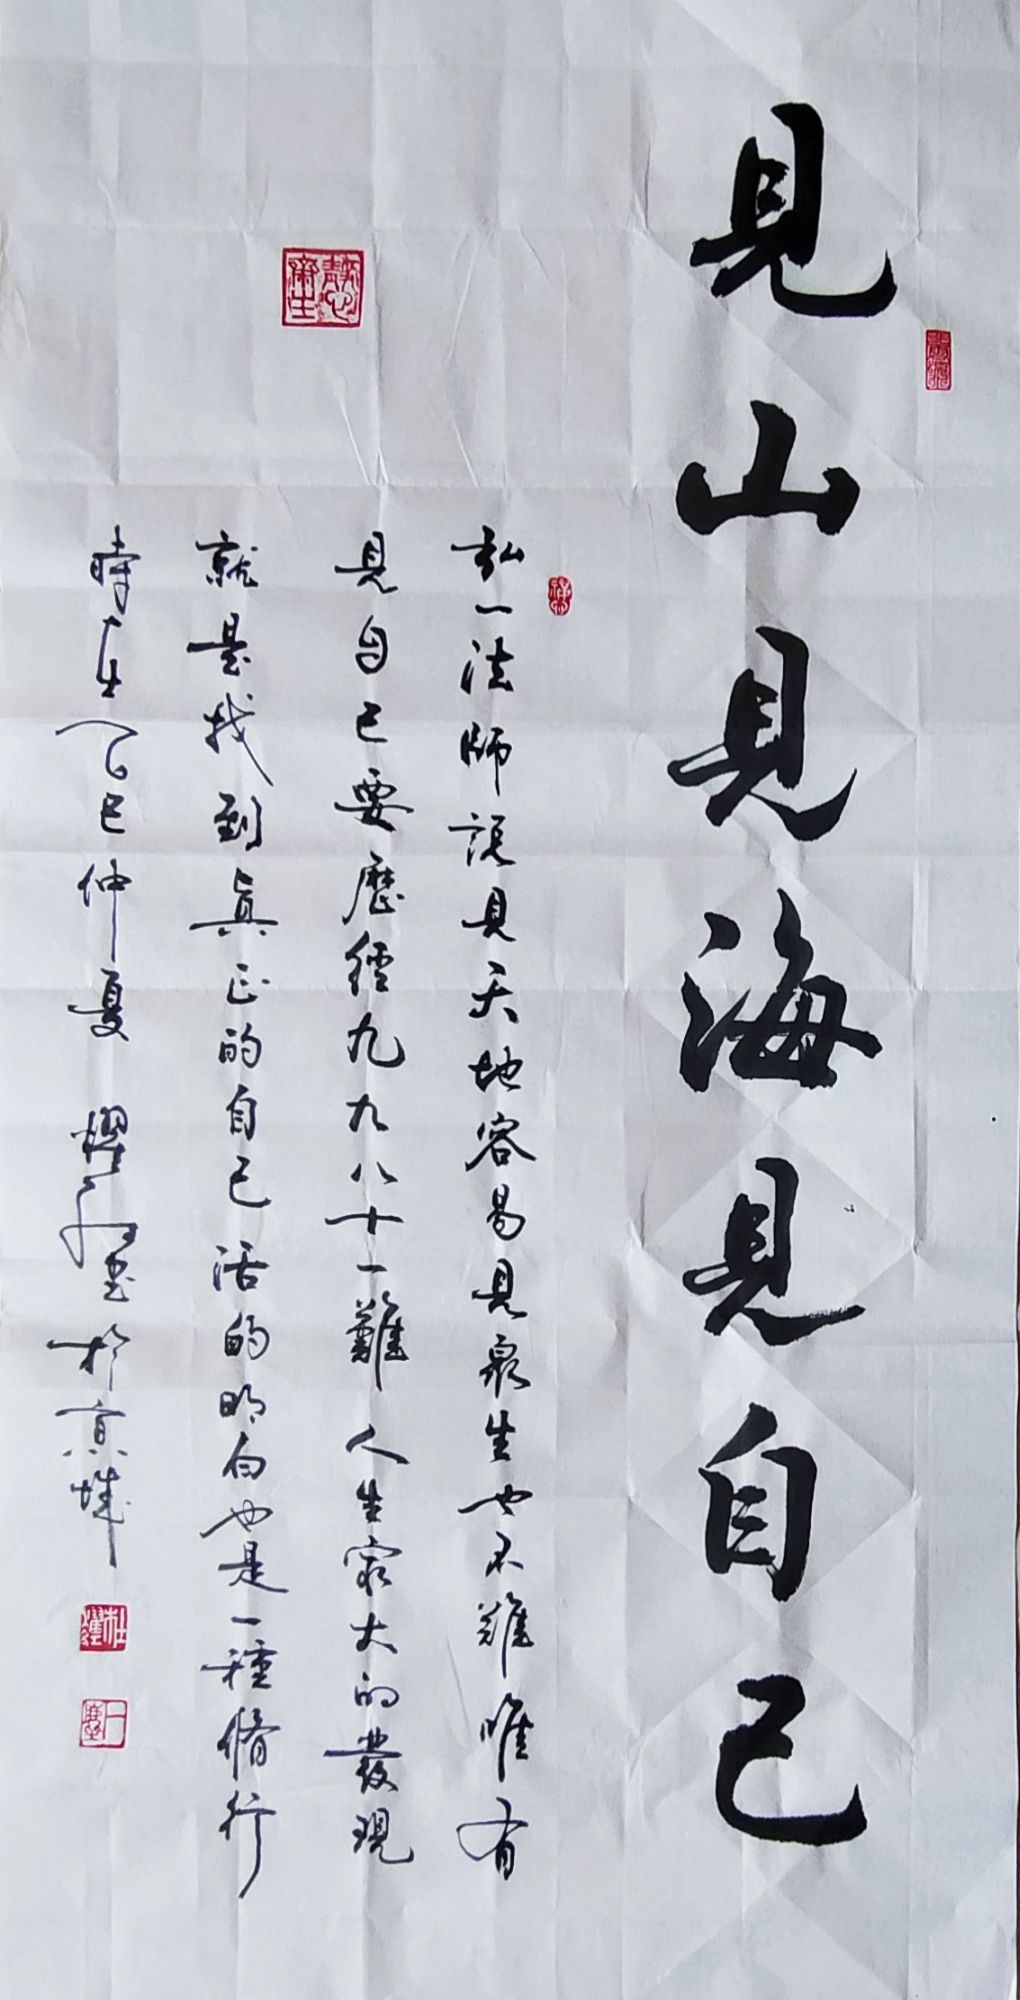 見山見海見自己
弘一法師説見天地容易見衆生也不難唯有
見自己要歷經九九八十一難人生最大的發現
就是找到眞正的自己活的明白也是一種脩行
時在乙巳仲夏 耀 書於京城
靜心齋主